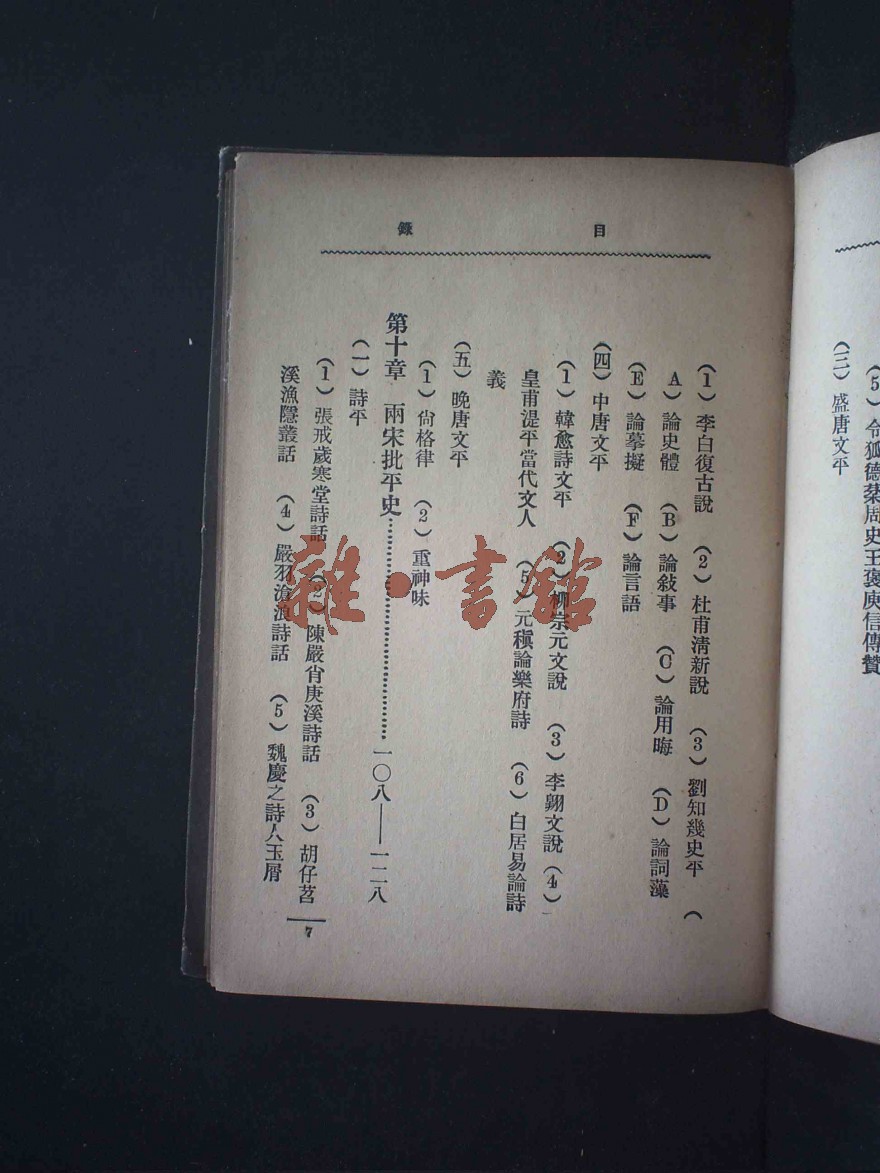 (5)令狐德棻周史王褒庾信傳贊
(三)盛唐文平
目錄
(1)李白復古說 (2)杜甫清新說 (3)劉知幾史平 (
A)論史體 (B)論敍事 (C)論用晦 (D)論詞藻
(E)論摹擬 (F)論言語
(四)中唐文平
(1)韓愈詩文平 (2)柳宗元文說 (3)李翺文說 (4)
皇甫湜平當代文人 (5)元稹論樂府詩 (6)白居易論詩
義
(五)晚唐文平
(1)尙格律 (2)重神味
第十章 兩宋批平史……一〇八——一二八
(一)詩平
(1)張戒歲寒堂詩話 (2)陳嚴肖庚溪詩話 (3)胡仔苕
溪漁隱叢話 (4)嚴羽滄浪詩話 (5)魏慶之詩人玉屑
7
雜·書館